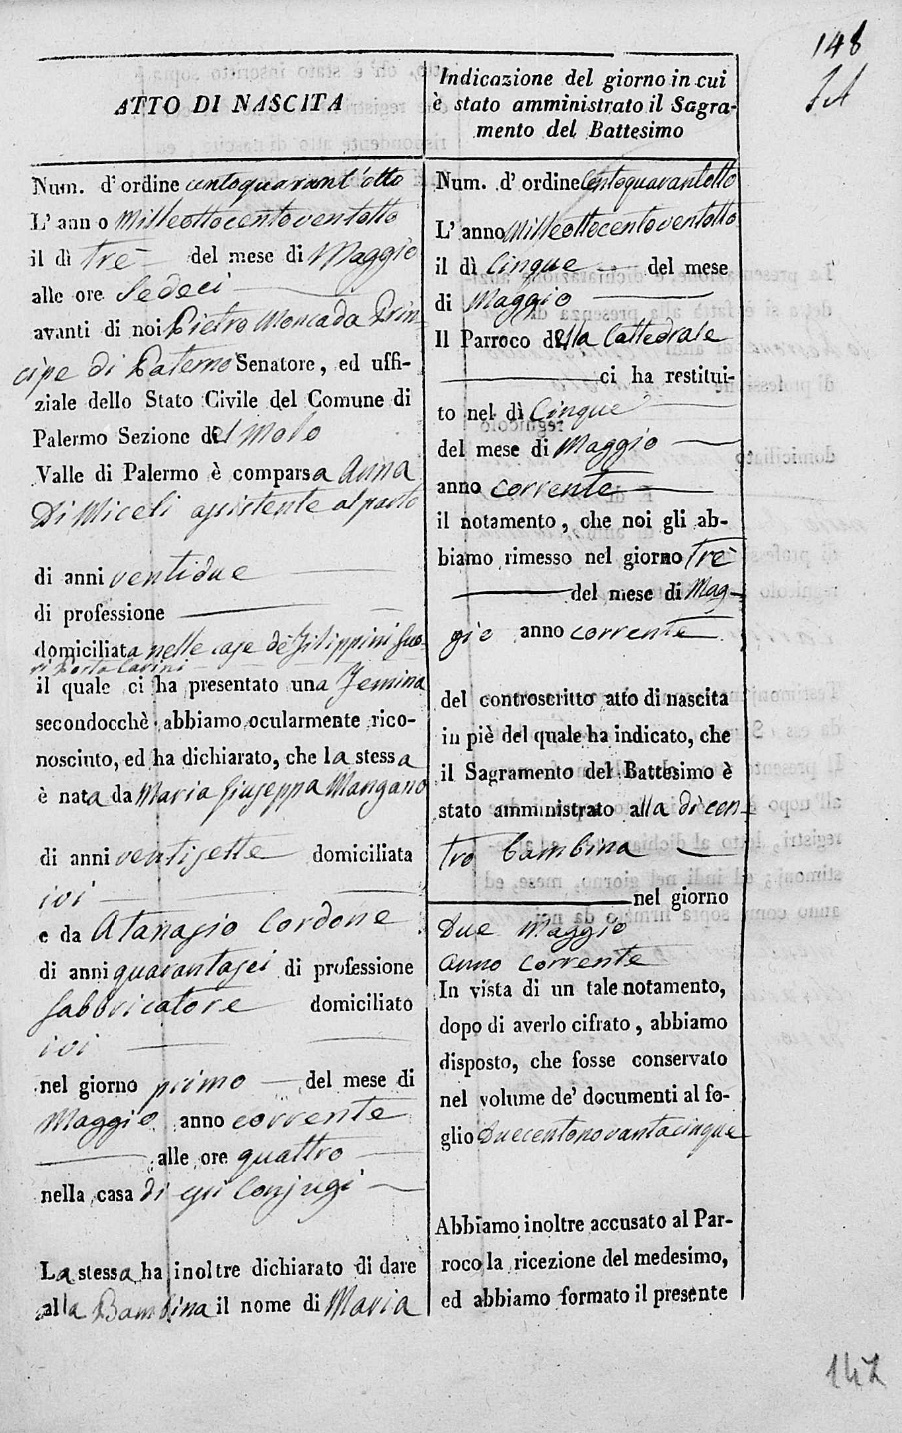 148
ATTO DI NASCITA
Num. d'ordine centoquarant'otto
L'anno Milleottocentoventotto
il dì trè del mese di Maggio
alle ore Sedeci
avanti di noi Pietro Moncada Prin-
cipe di Paternò Senatore, ed uffi-
ziale dello Stato Civile del Comune di
Palermo Sezione del Molo
Valle di Palermo è comparsa Anna
Di Miceli assistente al parto
di anni ventidue
di professione
domiciliata nelle case de Filippini fuo-
ri Porta Carini
il quale ci ha presentato una Femina
secondocchè abbiamo ocularmente rico-
nosciuto, ed ha dichiarato, che la stessa
è nata da Maria Giuseppa Mangano
di anni ventisette domiciliata
ivi
e da Atanasio Cordone
di anni quarantasei di professione
fabbricatore domiciliato
ivi
nel giorno primo del mese di
Maggio anno corrente
alle ore quattro
nella casa di essi Conjugi
La stessa ha inoltre dichiarato di dare
alla Bambina il nome di Maria
Indicazione del giorno in cui
è stato amministrato il Sagra-
mento del Battesimo
Num. d'ordine Centoquarantotto
L'anno Milleottocentoventotto
il dì Cinque del mese
di Maggio
Il Parroco della Cattedrale
ci ha restitui-
to nel dì Cinque
del mese di Maggio
anno corrente
il notamento, che noi gli ab-
biamo rimesso nel giorno Trè
del mese di Mag-
gio anno corrente
del controscritto atto di nascita
in piè del quale ha indicato, che
il Sagramento del Battesimo è
stato amministrato alla di con-
tro bambina
nel giorno
Due Maggio
anno corrente
In vista di un tale notamento,
dopo di averlo cifrato, abbiamo
disposto, che fosse conservato
nel volume de' documenti al fo-
glio Duecentonovantacinque
Abbiamo inoltre accusato al Par-
roco la ricezione del medesimo,
ed abbiamo formato il presente
147